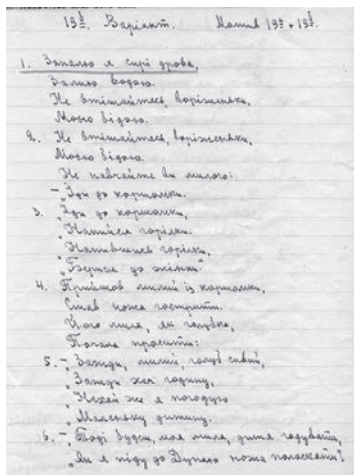 19b. Варіант. Мотив 19a + 19b.
1. Запалю я сирі дрова,
Залию водою.
Не втішайтесь, воріженьки,
Моєю бідою.
2. Не втішайтесь, воріженьки,
Моєю бідою.
Не навчайте ви милого:
— „Іди до коршомки.
3. „Іди до коршомки,
„Напийся горілки.
„Напившись горілки,
„Берися до жінки“.
4. Прийшов милий із коршомки,
Став ножа гострити.
Його мила, як голубка,
Почала просити:
5. — „Зажди, милий, голуб сивий,
„Зажди хоч годину,
„Нехай же я погодую
„Маленьку дитину.
6. — „Тоді будеш, моя мила, дитя годувати,
„Як я піду до Дунаю ножа полоскати!